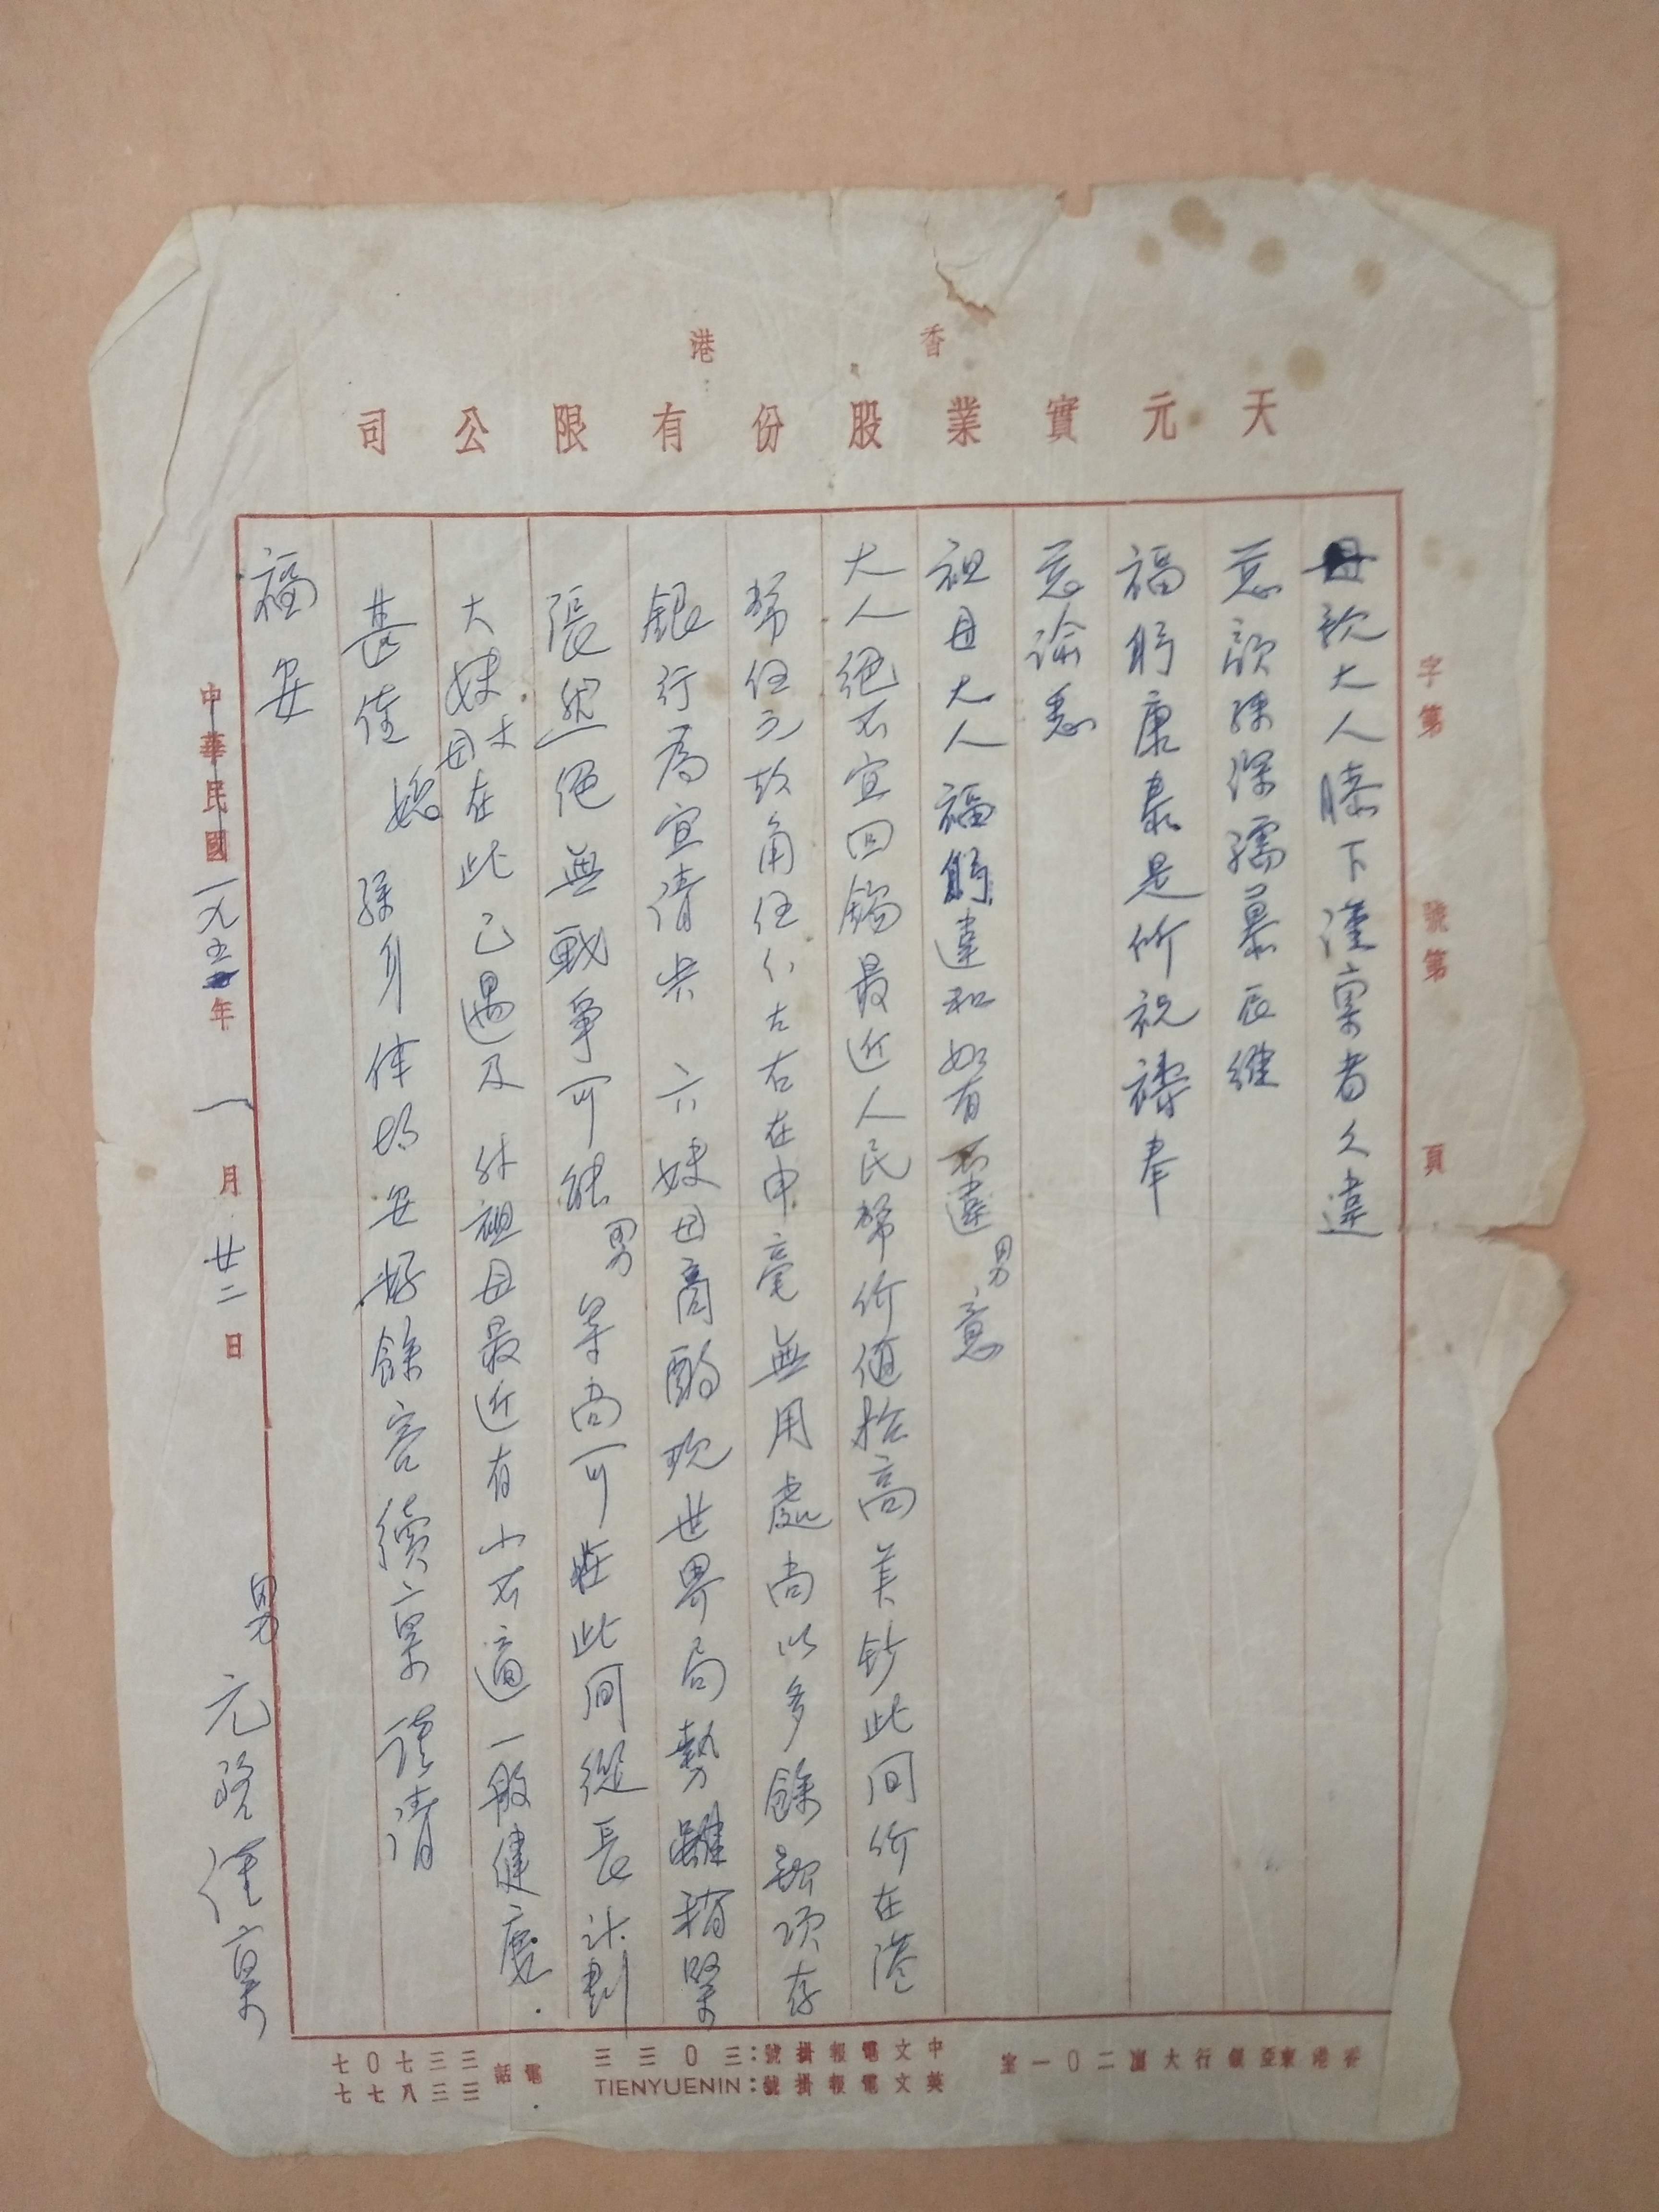 香港
天元實業股份有限公司
字第 號第 頁
母親大人膝下謹稟者久違
慈顏殊深孺慕辰維
福躬康泰是所祝禱奉
慈諭悉
祖母大人福躬違和如有不違男意
大人絕不宜回錫最近人民幣價值抬高美鈔此間價在港
幣伍元玖角伍仙左右在申毫無用處尚以多餘款項存
銀行為宜請與六妹母商酌現世界局勢雖稍緊
張然絕無戰爭可能男等尚可在此間從長計劃
大妹母在此已遇及外祖母最近有小不適一般健康
甚佳媳孫身体均安好餘容續稟謹請
福安
中華民國一九五年一月廿二日
男元謹稟
香港東亞銀行大廈二〇一室
中文電報掛號：三〇三三
英文電報掛號：TIENYUENIN
電話 三三七〇七
三三八七七